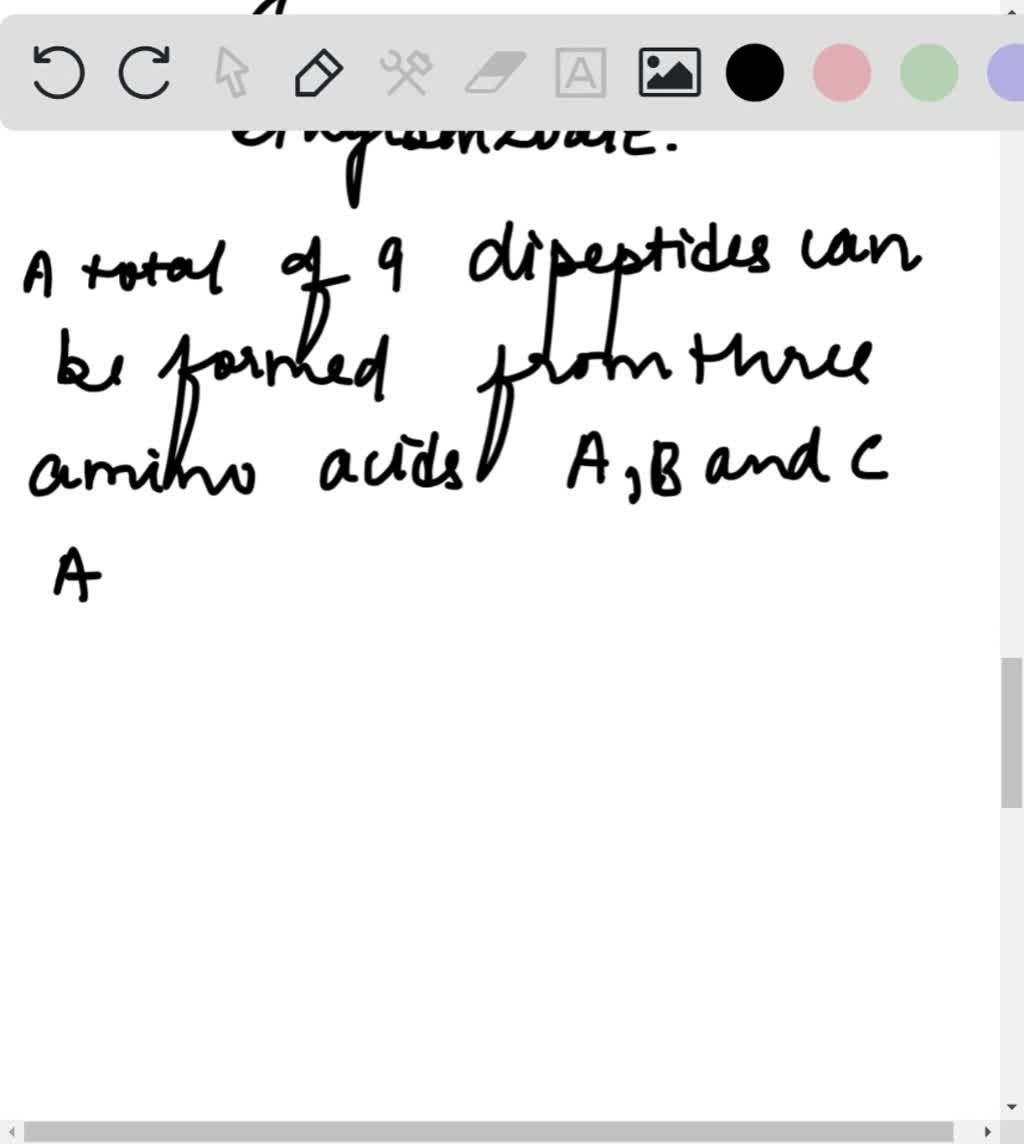 A total of 9 dipeptides can
be formed from three
amino acids A, B and C
A